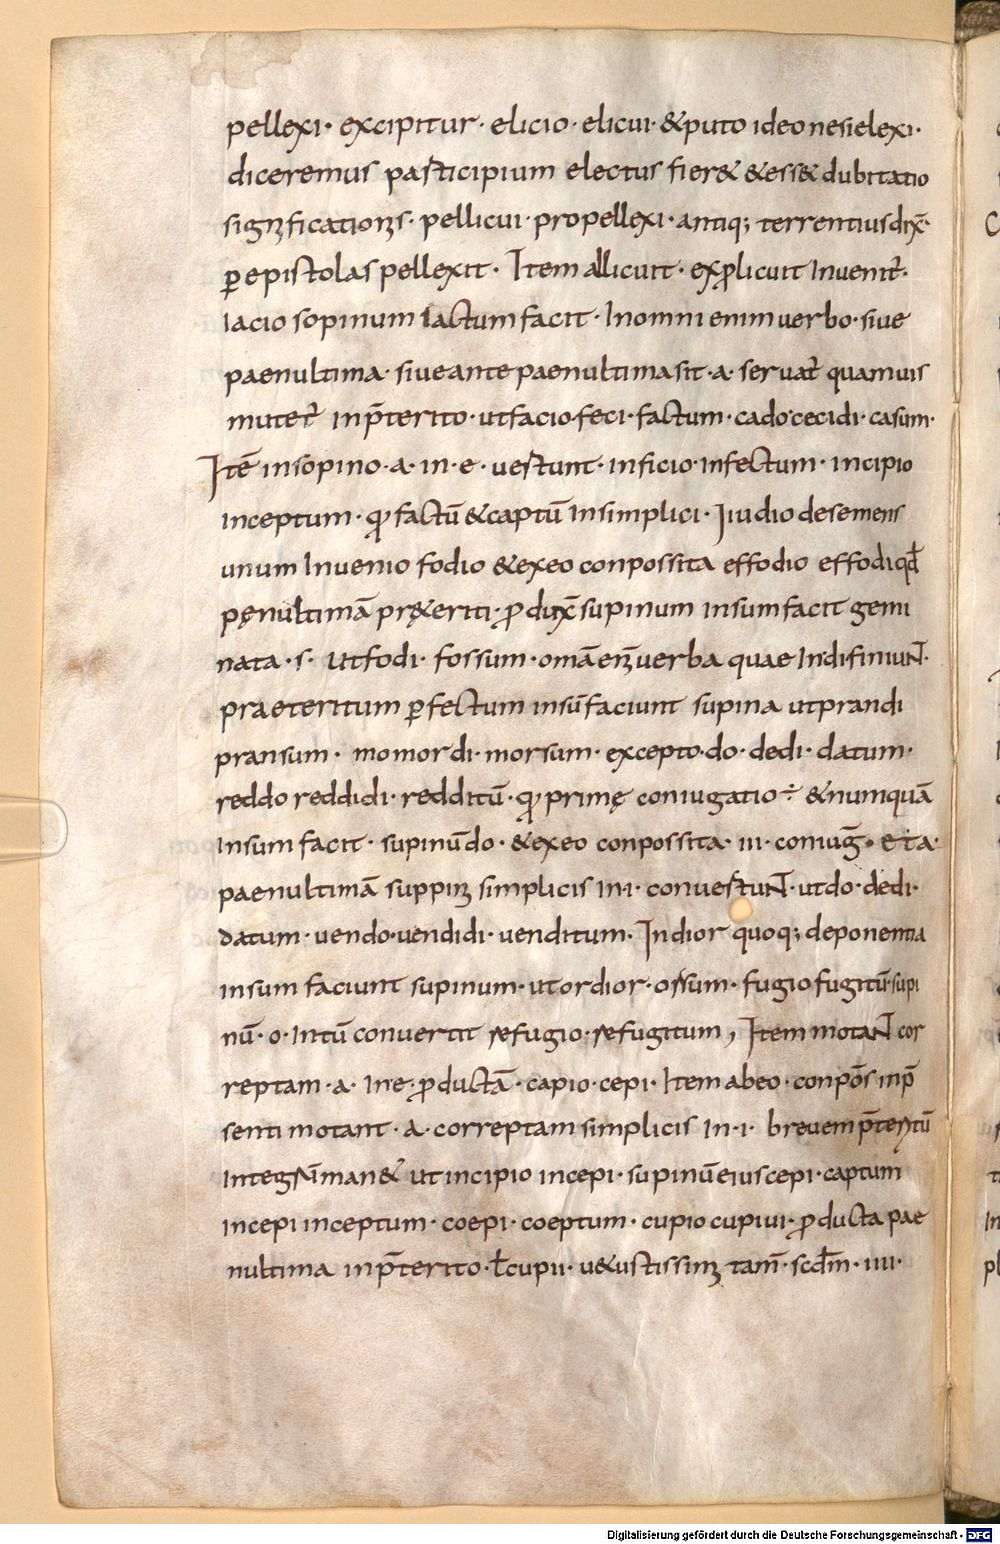 pellexi· excipitur· elicio· elicui· &puto ideo nesi elexi·
diceremus participium electus fier& &ess& dubitatio
significationis· pellicui· pro pellexi· antiq; terrentius dix̄·
ꝑ epistolas pellexit· Item allicuit· explicuit Inuenit̄·
Iacio sopinum Iactum facit· Inomni enim uerbo· siue
paenultima· siue ante paenultima sit· a· seruat̄ quamuis
mutet̄ inp̄terito· ut facio· feci· factum· cado· cecidi· casum·
Itē insopino· a· in· e· uertunt· inficio· infectum· incipio
inceptum· ꝙ factū & captū Insimplici· In dio desemens
unum Inuenio fodio & exeo conpossita effodio effodi qđ
pęnultimā pręteriti· ꝓdux̄ supinum insum facit gemi
nata· s· ut fodi· fossum· omā enim uerba quae Indi finiuNT·
praeteritum ꝑfectum insū faciunt supina ut prandi
pransum· momordi· morsum· excepto· do· dedi· datum·
reddo reddidi· redditū· ꝙ primę coniugatio ÷ & numquā
Insum facit· supinū do· & exeo conpossita· III· coniuḡ· & a·
paenultimā suppini simplicis In· i· conuertuNT· ut do· dedi·
datum· uendo· uendidi· uenditum· In dior quoq; deponentia
insum faciunt supinum· ut ordior· orsum· fugio fugitū· supi
nū· o· Intū conuertit refugio· refugitum, Item motaNT cor
reptam· a· In e· ꝓductā· capio· cepi· Item ab eo· conpōs inp̄
senti motant· a· correptam simplicis In· i· breuem p̄teritū
Integrū man& ut incipio incepi· supinū eius cepi· captum
incepi inceptum· coepi· coeptum· cupio cupiui· ꝓducta pae
nultima inp̄terito· ł cupii· u&ustissimi tam̄· scd̄m· IIII·
Digitalisierung gefördert durch die Deutsche Forschungsgemeinschaft - DFG